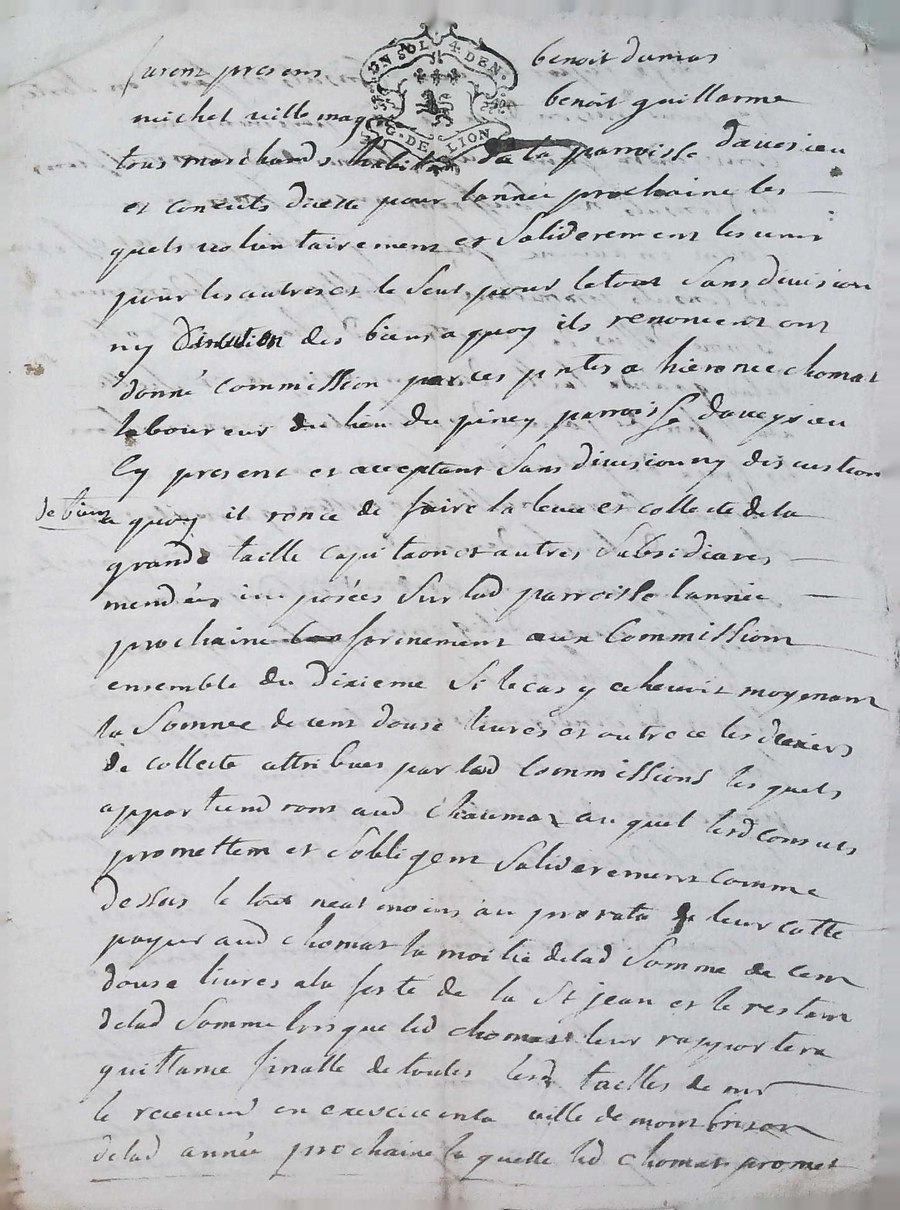 UN SOL 4 DEN.
G. DE LION
furent presens benoit dumas
michel villemag benoit guillarme
tous marchands habit de la parroisse davesieu
et consuls dicelle pour lannée prochaine les
quels volontairement et Soliderement les uns
pour les autres et le Seul pour le tout Sans division
ny Discution des biens a quoy ils renoncent ont
donné commission par ces pntes a hieronie chomat
laboureur du lieu du piney parroisse daveysieu
Cy present et acceptant Sans division ny discution
de biens
a quoy il ronce de faire la levée et collecte de la
grande taille capitaon et autres Subsidiares
mendées imposées Sur lad parroisse lannée
prochaine formement aux Commissions
ensemble du Dixieme Si le cas y echeuoit moyenant
la Somme de cent douse livres et outre ce les deniers
de collecte attribues par lesd Commissions les quels
appartiendront aud Chaumat au quel lesd consuls
promettent et Sobligent Soliderement comme
dessus le tout neat moins au prorata de leur cotte
payer aud chomat la moitié delad Somme de cent
douse livres ala feste de la St jean et le restant
delad Somme lorsque led chomat leur rapportera
quittance finalle de toutes lesd tailles de mr
le receveur en exercice en la ville de montbrison
delad année prochaine la quelle led chomat promet